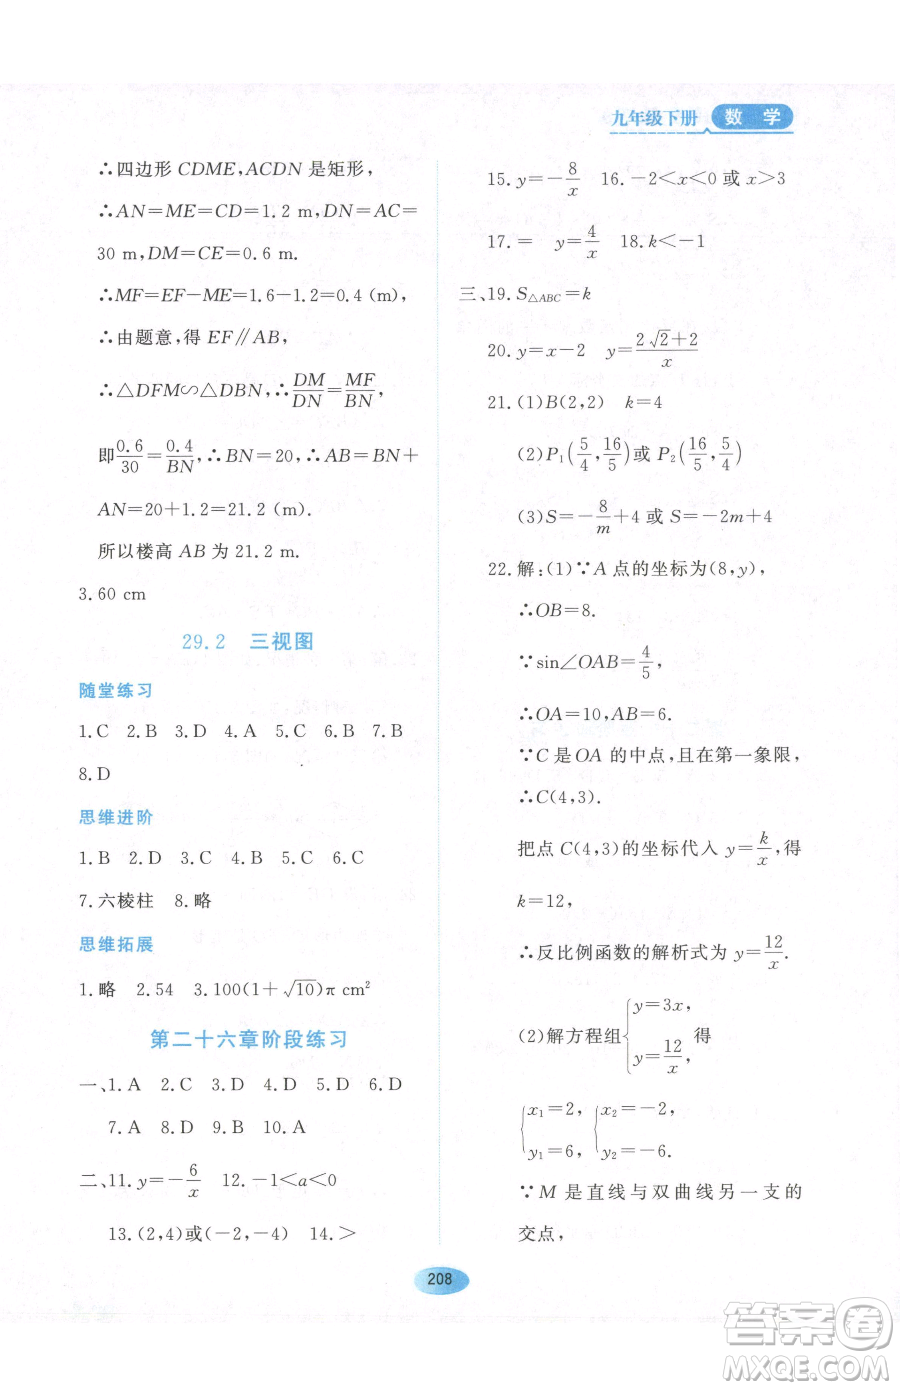 九年级下册 数 学
∴四边形 CDME,ACDN 是矩形,
∴AN=ME=CD=1.2 m,DN=AC=
30 m,DM=CE=0.6 m.
∴MF=EF-ME=1.6-1.2=0.4 (m),
∴由题意,得 EF∥AB,
∴△DFM∽△DBN,∴DM/DN=MF/BN,
即0.6/30=0.4/BN,∴BN=20,∴AB=BN+
AN=20+1.2=21.2 (m).
所以楼高 AB 为 21.2 m.
3.60 cm
29.2 三视图
随堂练习
1.C 2.B 3.D 4.A 5.C 6.B 7.B
8.D
思维进阶
1.B 2.D 3.C 4.B 5.C 6.C
7.六棱柱 8.略
思维拓展
1.略 2.54 3.100(1+√10)π cm²
第二十六章阶段练习
一、1.A 2.C 3.D 4.D 5.D 6.D
7.A 8.D 9.B 10.A
二、11.y=-6/x 12.-1<a<0
13.(2,4)或(-2,-4) 14.>
15.y=-8/x 16.-2<x<0 或 x>3
17.= y=4/x 18.k<-1
三、19.S△ABC=k
20.y=x-2 y=(2√2+2)/x
21.(1)B(2,2) k=4
(2)P₁(5/4,16/5)或 P₂(16/5,5/4)
(3)S=-8/m+4 或 S=-2m+4
22.解:(1)∵A 点的坐标为(8,y),
∴OB=8.
∵sin∠OAB=4/5,
∴OA=10,AB=6.
∵C 是OA 的中点,且在第一象限,
∴C(4,3).
把点 C(4,3)的坐标代入 y=k/x,得
k=12,
∴反比例函数的解析式为 y=12/x.
(2)解方程组{y=3x, y=12/x,得
{x₁=2, y₁=6, {x₂=-2, y₂=-6.
∵M 是直线与双曲线另一支的
交点,
208
答案圈
MXQE.COM